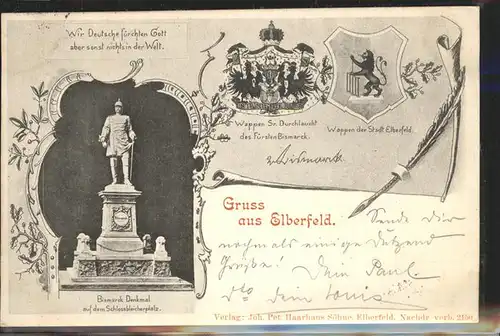 Wir Deutsche fürchten Gott
aber sonst nichts in der Welt.
Wappen Sr. Durchlaucht
des Fürsten Bismarck.
Wappen der Stadt Elberfeld.
v. Bismarck
Gruss
aus Elberfeld.
Sende Dir
nochmals einige Dutzend
Grüße! Dein Paul
dto dein Louis
Bismarck Denkmal
auf dem Schlossbleicherplatz.
Verlag: Joh. Pet. Haarhaus Söhne, Elberfeld. Nachdr. verb.